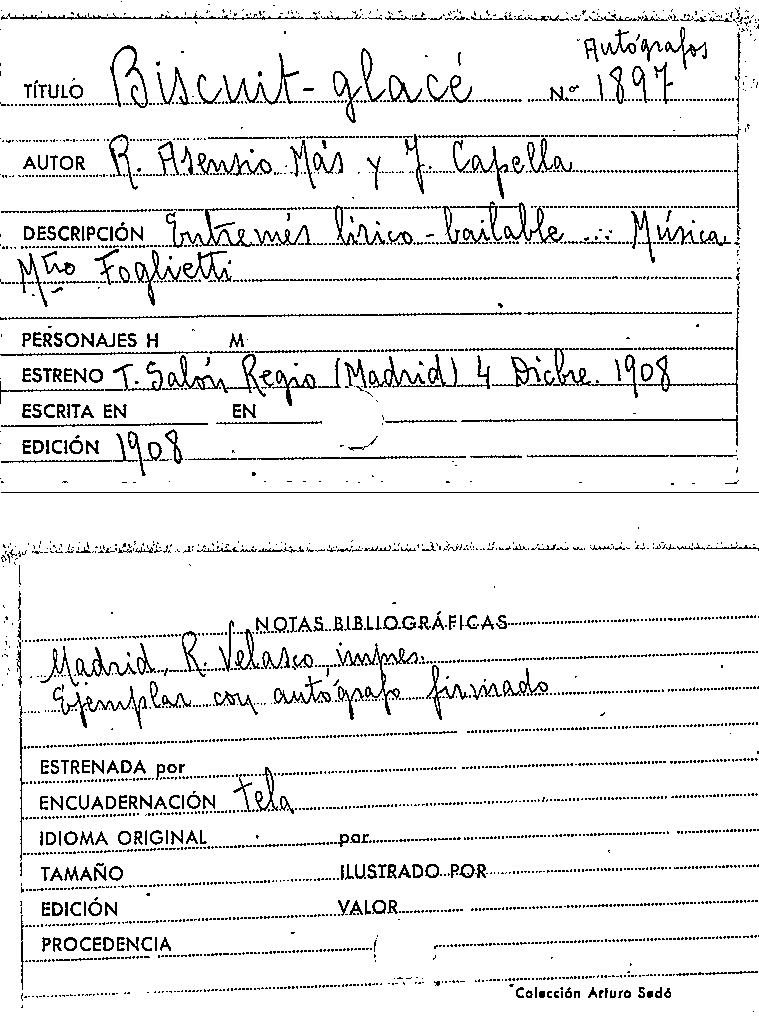 Autógrafos
TÍTULO Biscuit-glacé Nº 1897
AUTOR R. Asensio Más y J. Capella
DESCRIPCIÓN Entremés lírico-bailable ... Música
Mtro Foglietti
PERSONAJES H M
ESTRENO T. Salón Regio (Madrid) 4 Dicbre. 1908
ESCRITA EN EN
EDICIÓN 1908
NOTAS BIBLIOGRÁFICAS
Madrid, R. Velasco, impres.
Ejemplar con autógrafo firmado
ESTRENADA por
ENCUADERNACIÓN tela
IDIOMA ORIGINAL por
TAMAÑO ILUSTRADO POR
EDICIÓN VALOR
PROCEDENCIA
Colección Arturo Sedó